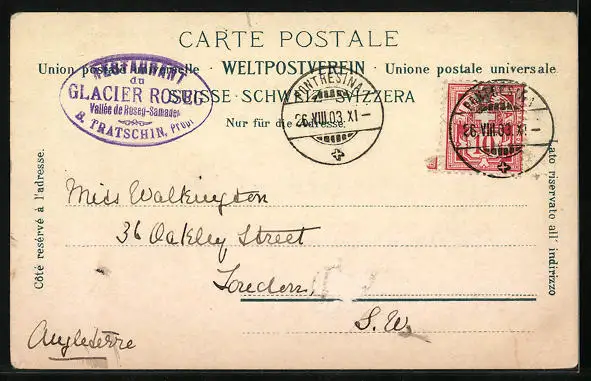 CARTE POSTALE
Union postale universelle · WELTPOSTVEREIN · Unione postale universale
SUISSE · SCHWEIZ · SVIZZERA
Nur für die Adresse.
RESTAURANT
du
GLACIER ROSEG
Vallée de Roseg-Samaden
B. TRATSCHIN, Propr
PONTRESINA
26.VIII.03.XI–
PONTRESINA
26.VIII.03.XI–
10
Côté réservé à l'adresse.
Lato riservato all' indirizzo
Miss Walkington
36 Oakley Street
London,
S.W.
Angleterre